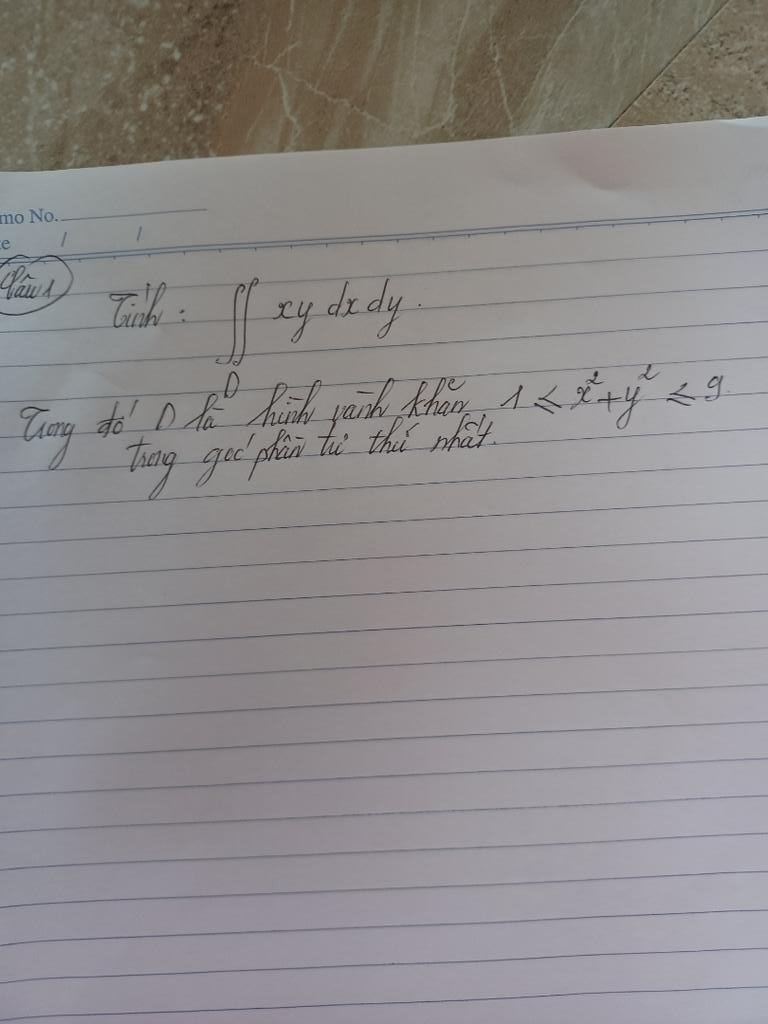 mo No.
te / /
Câu 1
Tính : ∬ xy dx dy.
D
Trong đó D là hình vành khăn 1 ≤ x² + y² ≤ 9.
trong góc phần tư thứ nhất.